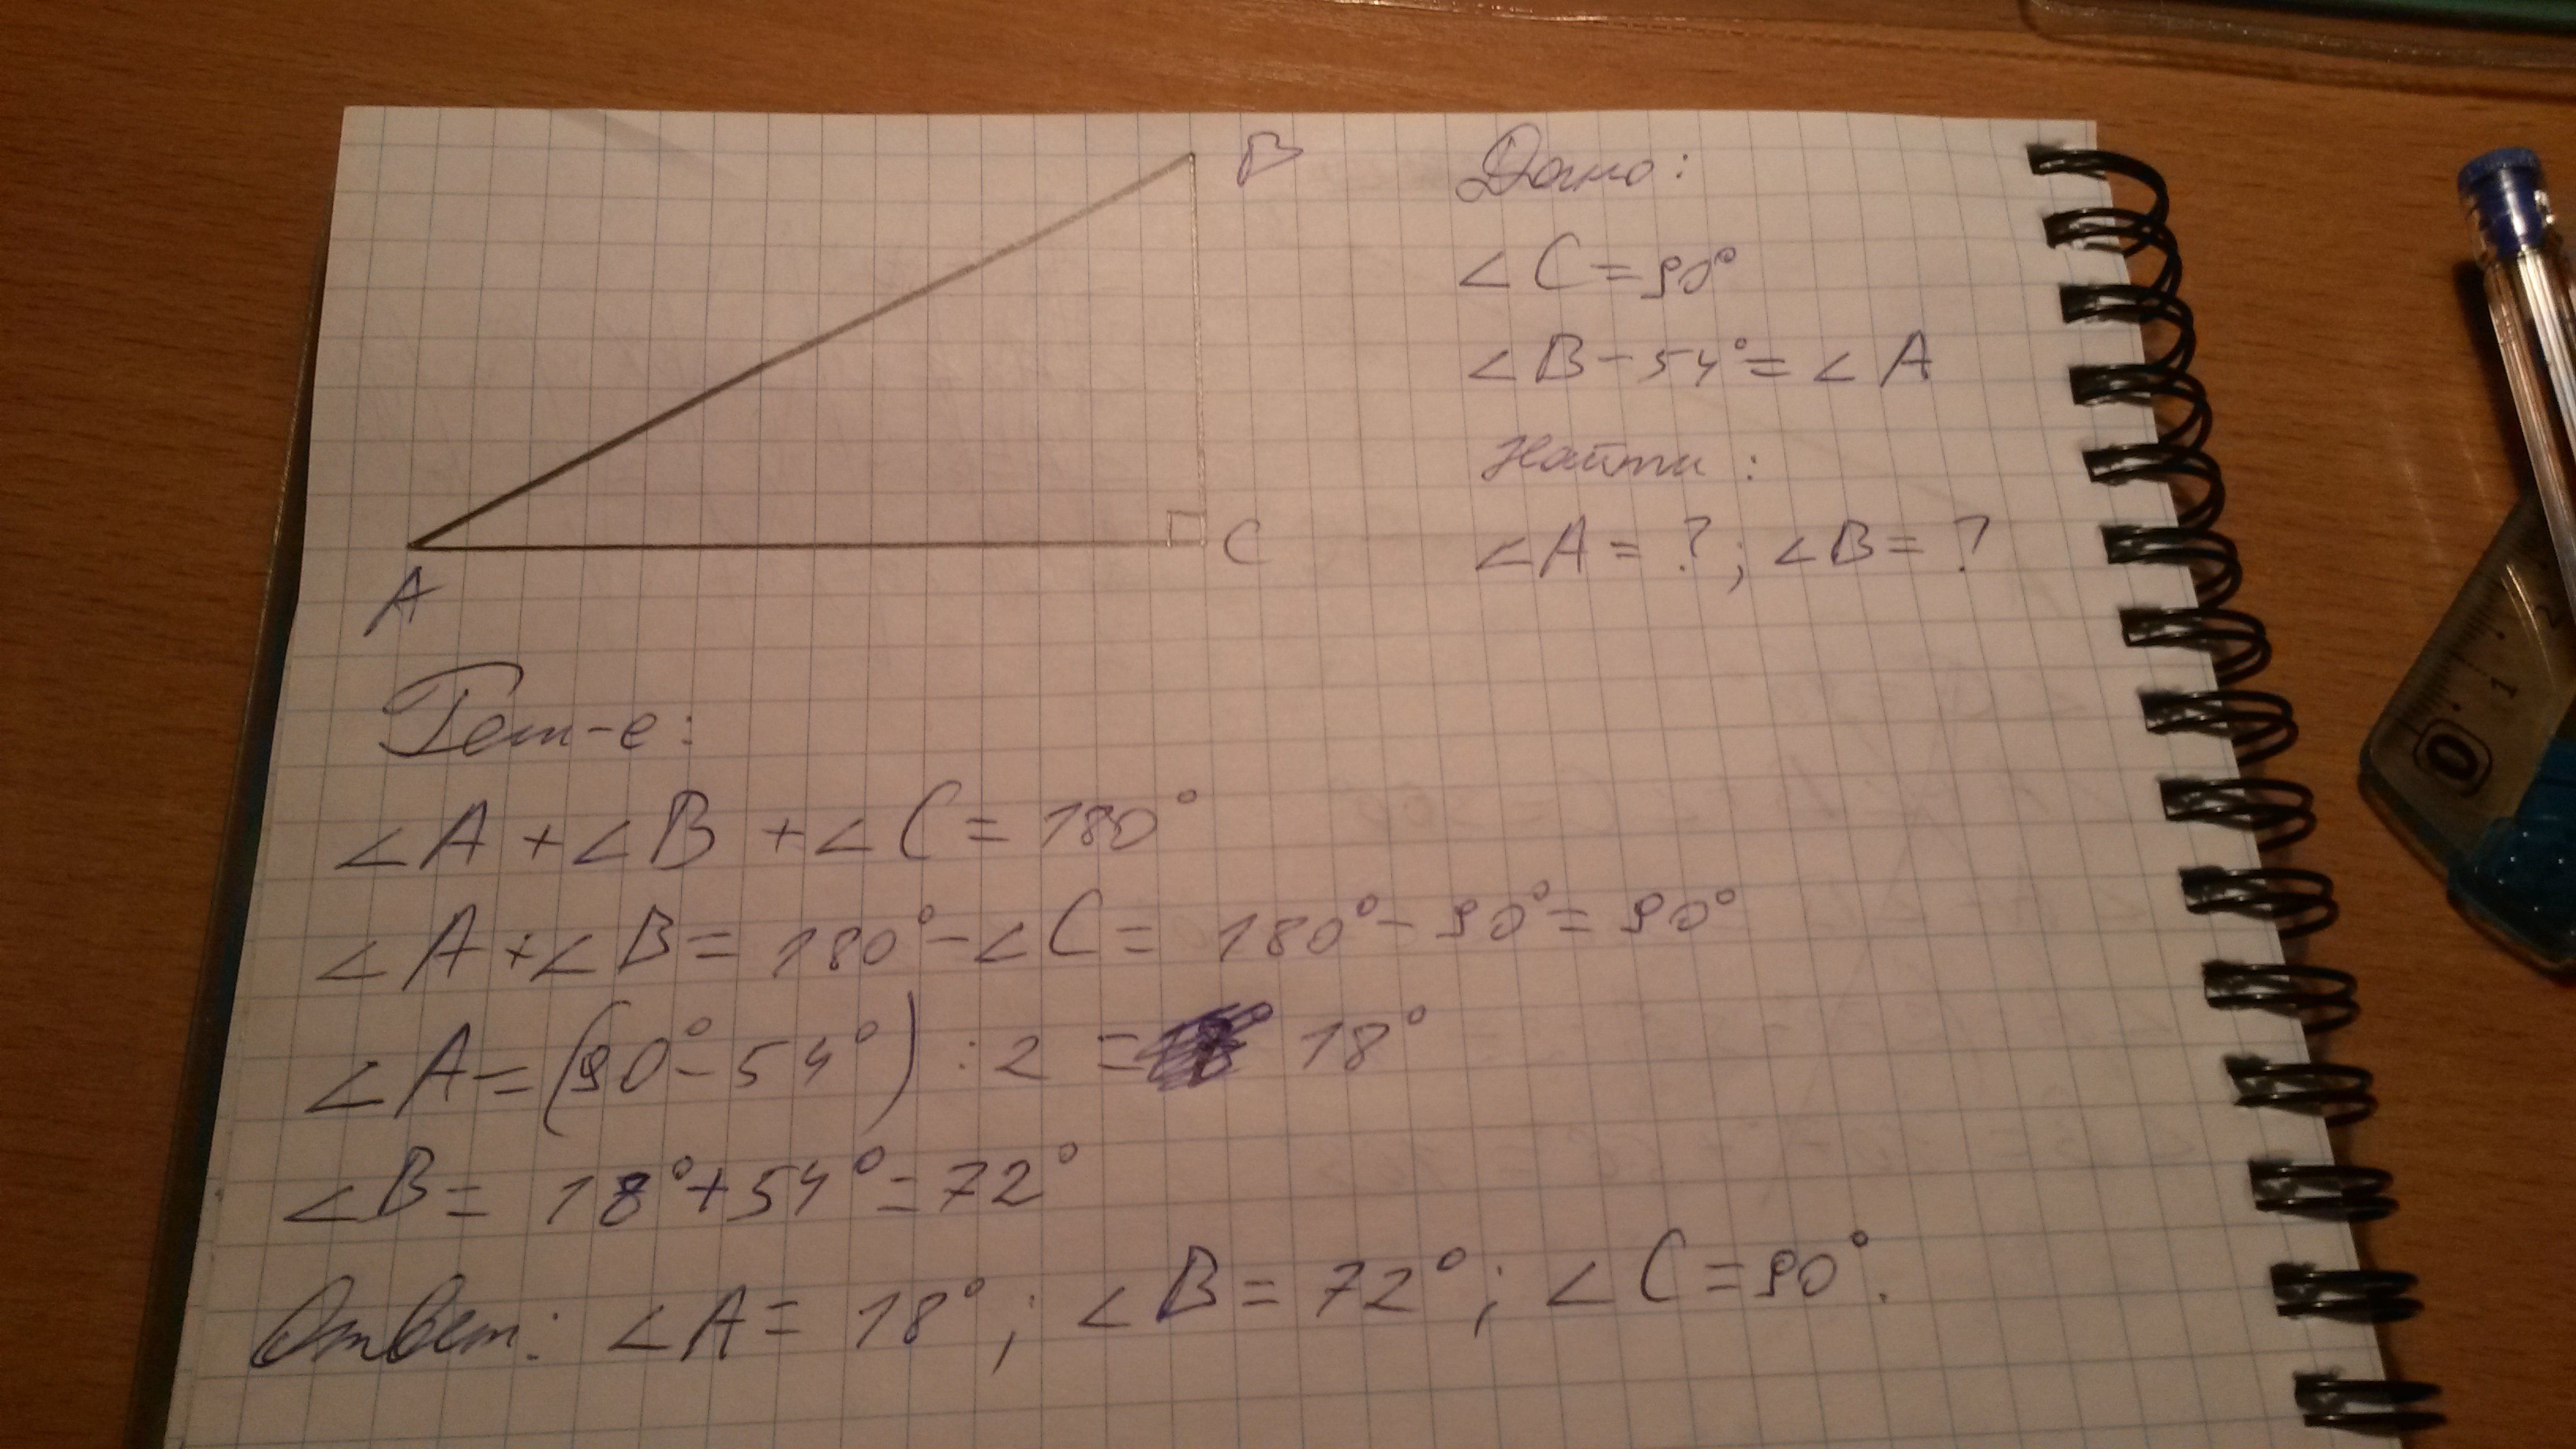 B
Дано:
∠C=90°
∠B-54°=∠A
Найти:
∠A=?; ∠B=?
C
A
Реш-е:
∠A+∠B+∠C=180°
∠A+∠B=180°-∠C=180°-90°=90°
∠A=(90°-54°):2= 18°
∠B=18°+54°=72°
Ответ: ∠A=18°; ∠B=72°; ∠C=90°.
0 1 2